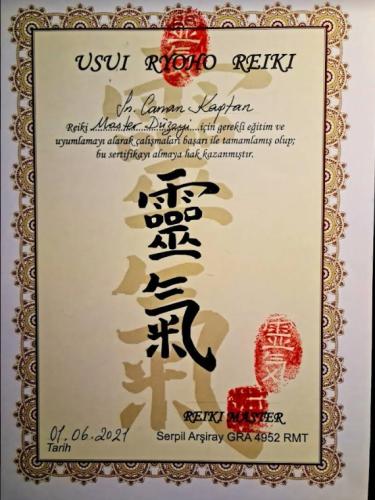 USUI RYOHO REIKI
Sn. Canan Kaptan
Reiki Master Düzeyi için gerekli eğitim ve
uyumlamayı alarak çalışmaları başarı ile tamamlamış olup;
bu sertifikayı almaya hak kazanmıştır.
靈
氣
REIKI MASTER
01.06.2021
Serpil Arşiray GRA 4952 RMT
Tarih